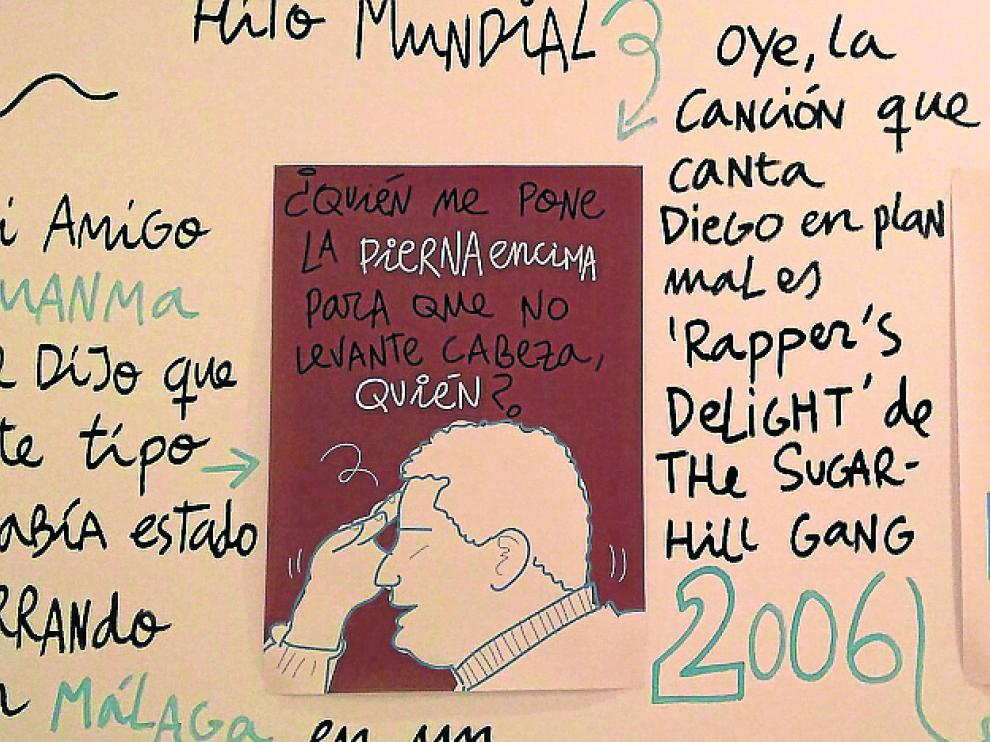 Hito MUNDIAL
i AMiGO
MANMA
DIJO que
te tipo
ABÍA estado
RRANdo
MÁLAGA
en un
¿QUIÉN me PONE
LA PIERNA encima
PARA QUE NO
LEVANTE CABEZA,
QUIÉN?
oye, la
CANCIÓN que
CANTA
DIEGO en plan
mal es
'Rapper's
DELIGHT' de
THE SUGAR-
HILL GANG
2006